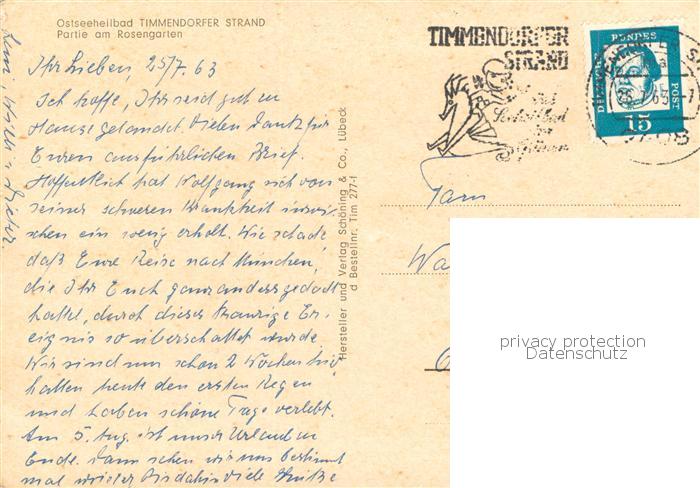 Ostseeheilbad TIMMENDORFER STRAND
Partie am Rosengarten
Ihr Lieben, 25/7. 63
Ich hoffe, Ihr seid gut in
Hause gelandet. Vielen Dank für
Euren ausführlichen Brief.
Hoffentlich hat Wolfgang sich von
seiner schweren Krankheit inzwi-
schen ein wenig erholt. Wie schade,
daß Eure Reise nach München,
die Ihr Euch ganz anders gedacht
hattet, durch dieses traurige Er-
eignis so überschattet wurde.
Wir sind nun schon 2 Wochen hier,
hatten heute den ersten Regen
und haben schöne Tage verlebt.
Am 5. Aug. ist unser Urlaub zu
Ende. Dann sehen wir uns bestimmt
mal wieder. Bis dahin viele Grüße
Hersteller und Verlag Schöning & Co., Lübeck
d Bestellnr. Tim 277-1
TIMMENDORFER
STRAND
DEUTSCHE
BUNDES
POST
15
Fam
Wa
privacy protection
Datenschutz